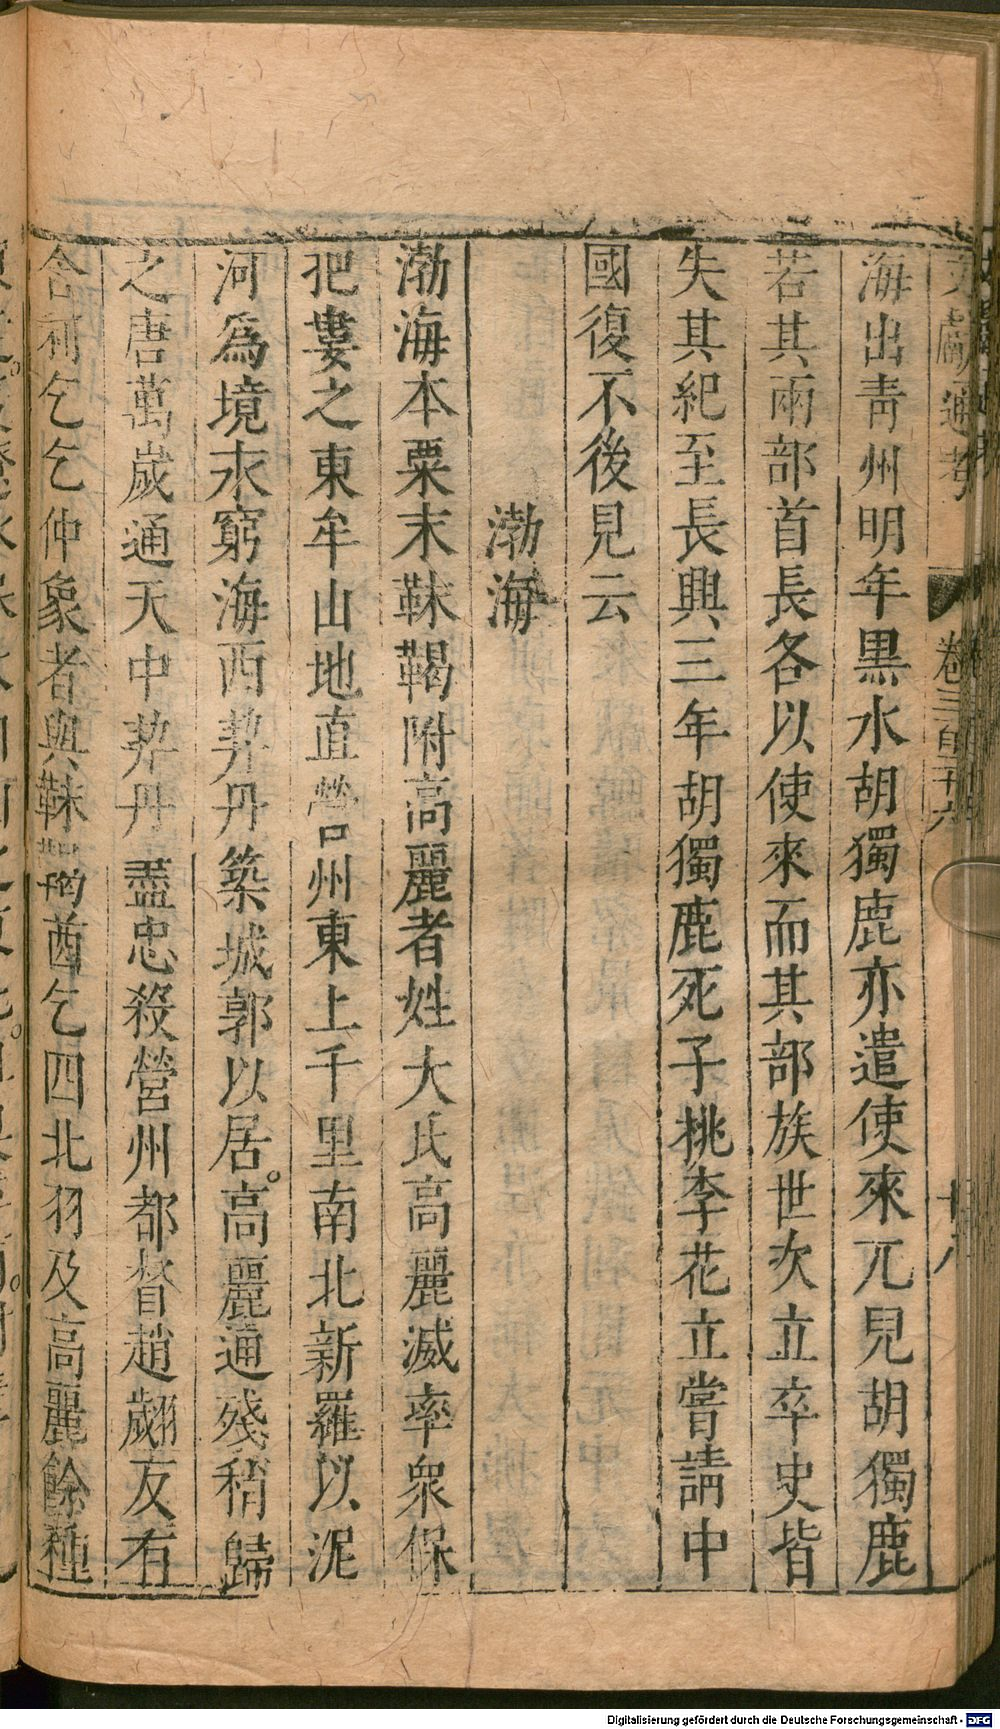 文獻通考 卷三百二十六 十八
海出青州明年黒水胡獨鹿亦遣使來兀兒胡獨鹿
若其兩部首長各以使來而其部族世次立卒史皆
失其紀至長興三年胡獨鹿死子桃李花立嘗請中
國復不後見云
渤海
渤海本粟末靺鞨附高麗者姓大氏高麗滅率衆保
挹婁之東牟山地直營州東上千里南北新羅以泥
河爲境東窮海西契丹築城郭以居。高麗逋殘稍歸
之唐萬歲通天中契丹盡忠殺營州都督趙翽友有
舍利乞乞仲象者與靺鞨酋乞四北羽及高麗餘種
Digitalisierung gefördert durch die Deutsche Forschungsgemeinschaft - DFG